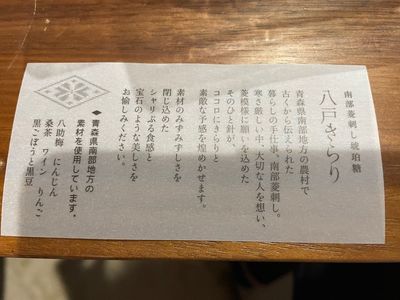 南部菱刺し琥珀糖
八戸きらり
青森県南部地方の農村で
古くから伝えられた
暮らしの手仕事、南部菱刺し。
寒さ厳しい中、大切な人を想い、
菱模様に願いを込めた
そのひと針が、
ココロにきらりと
素敵な予感を煌めかせます。
素材のみずみずしさを
閉じ込めた
シャリぷる食感と
宝石のような美しさを
お愉しみください。
◆青森県南部地方の
素材を使用しています。
八助梅 にんじん
桑茶 ワイン りんご
黒ごぼうと黒豆